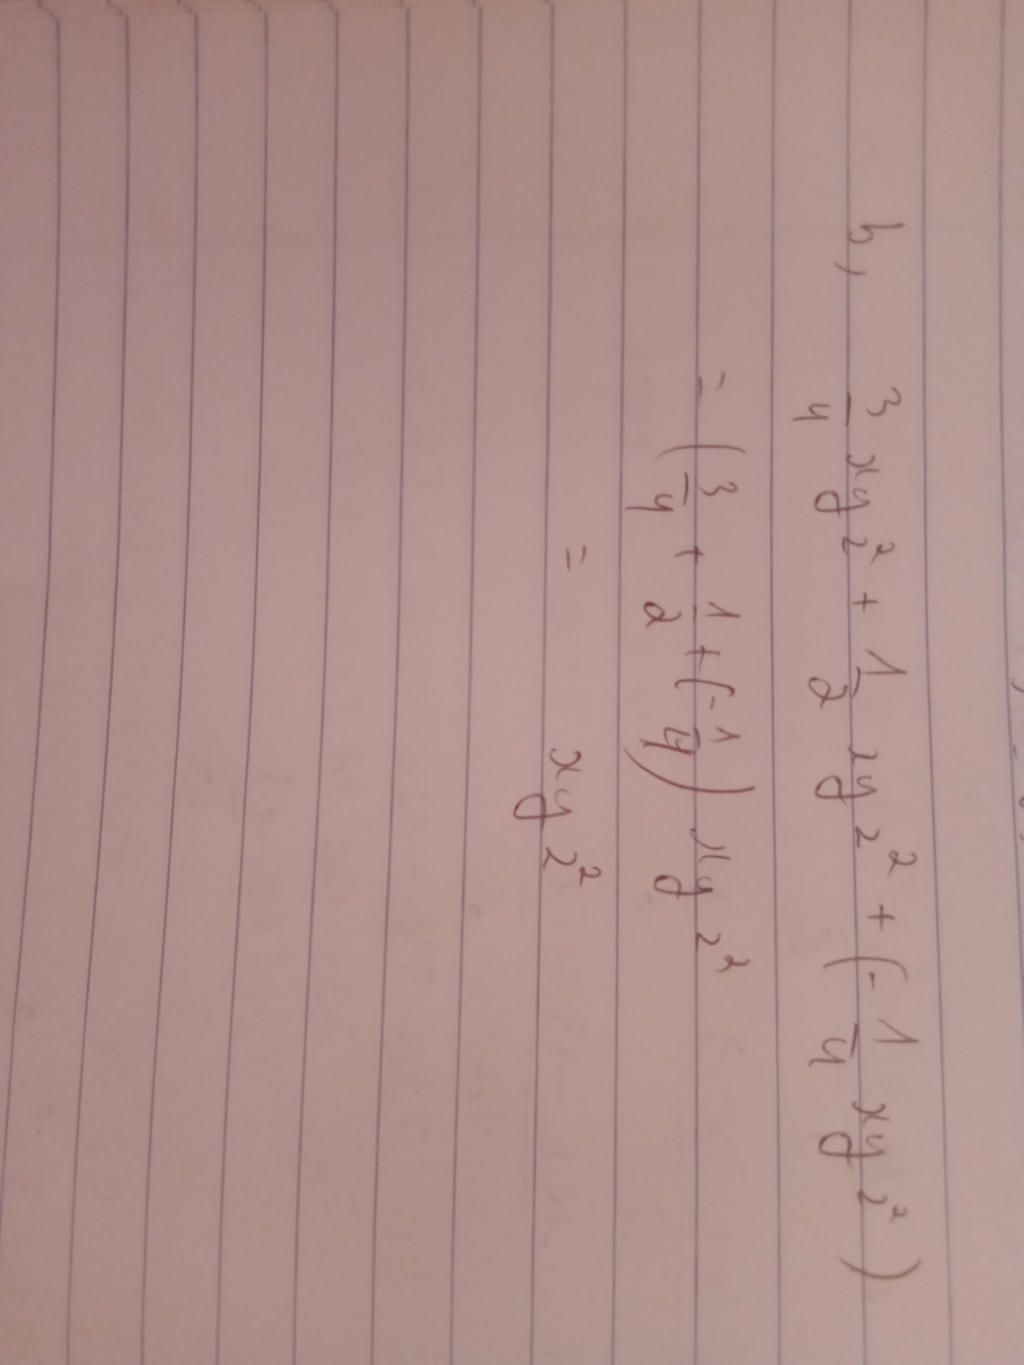 b, 3/4 xyz² + 1/2 xyz² + (-1/4 xyz²)
= (3/4 + 1/2 + (-1/4) xyz²
= xyz²